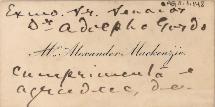 Exmo. Sr. Senador
Dr. Adolpho Gordo
Alexander Mackenzie
cumprimenta e
agradece, de